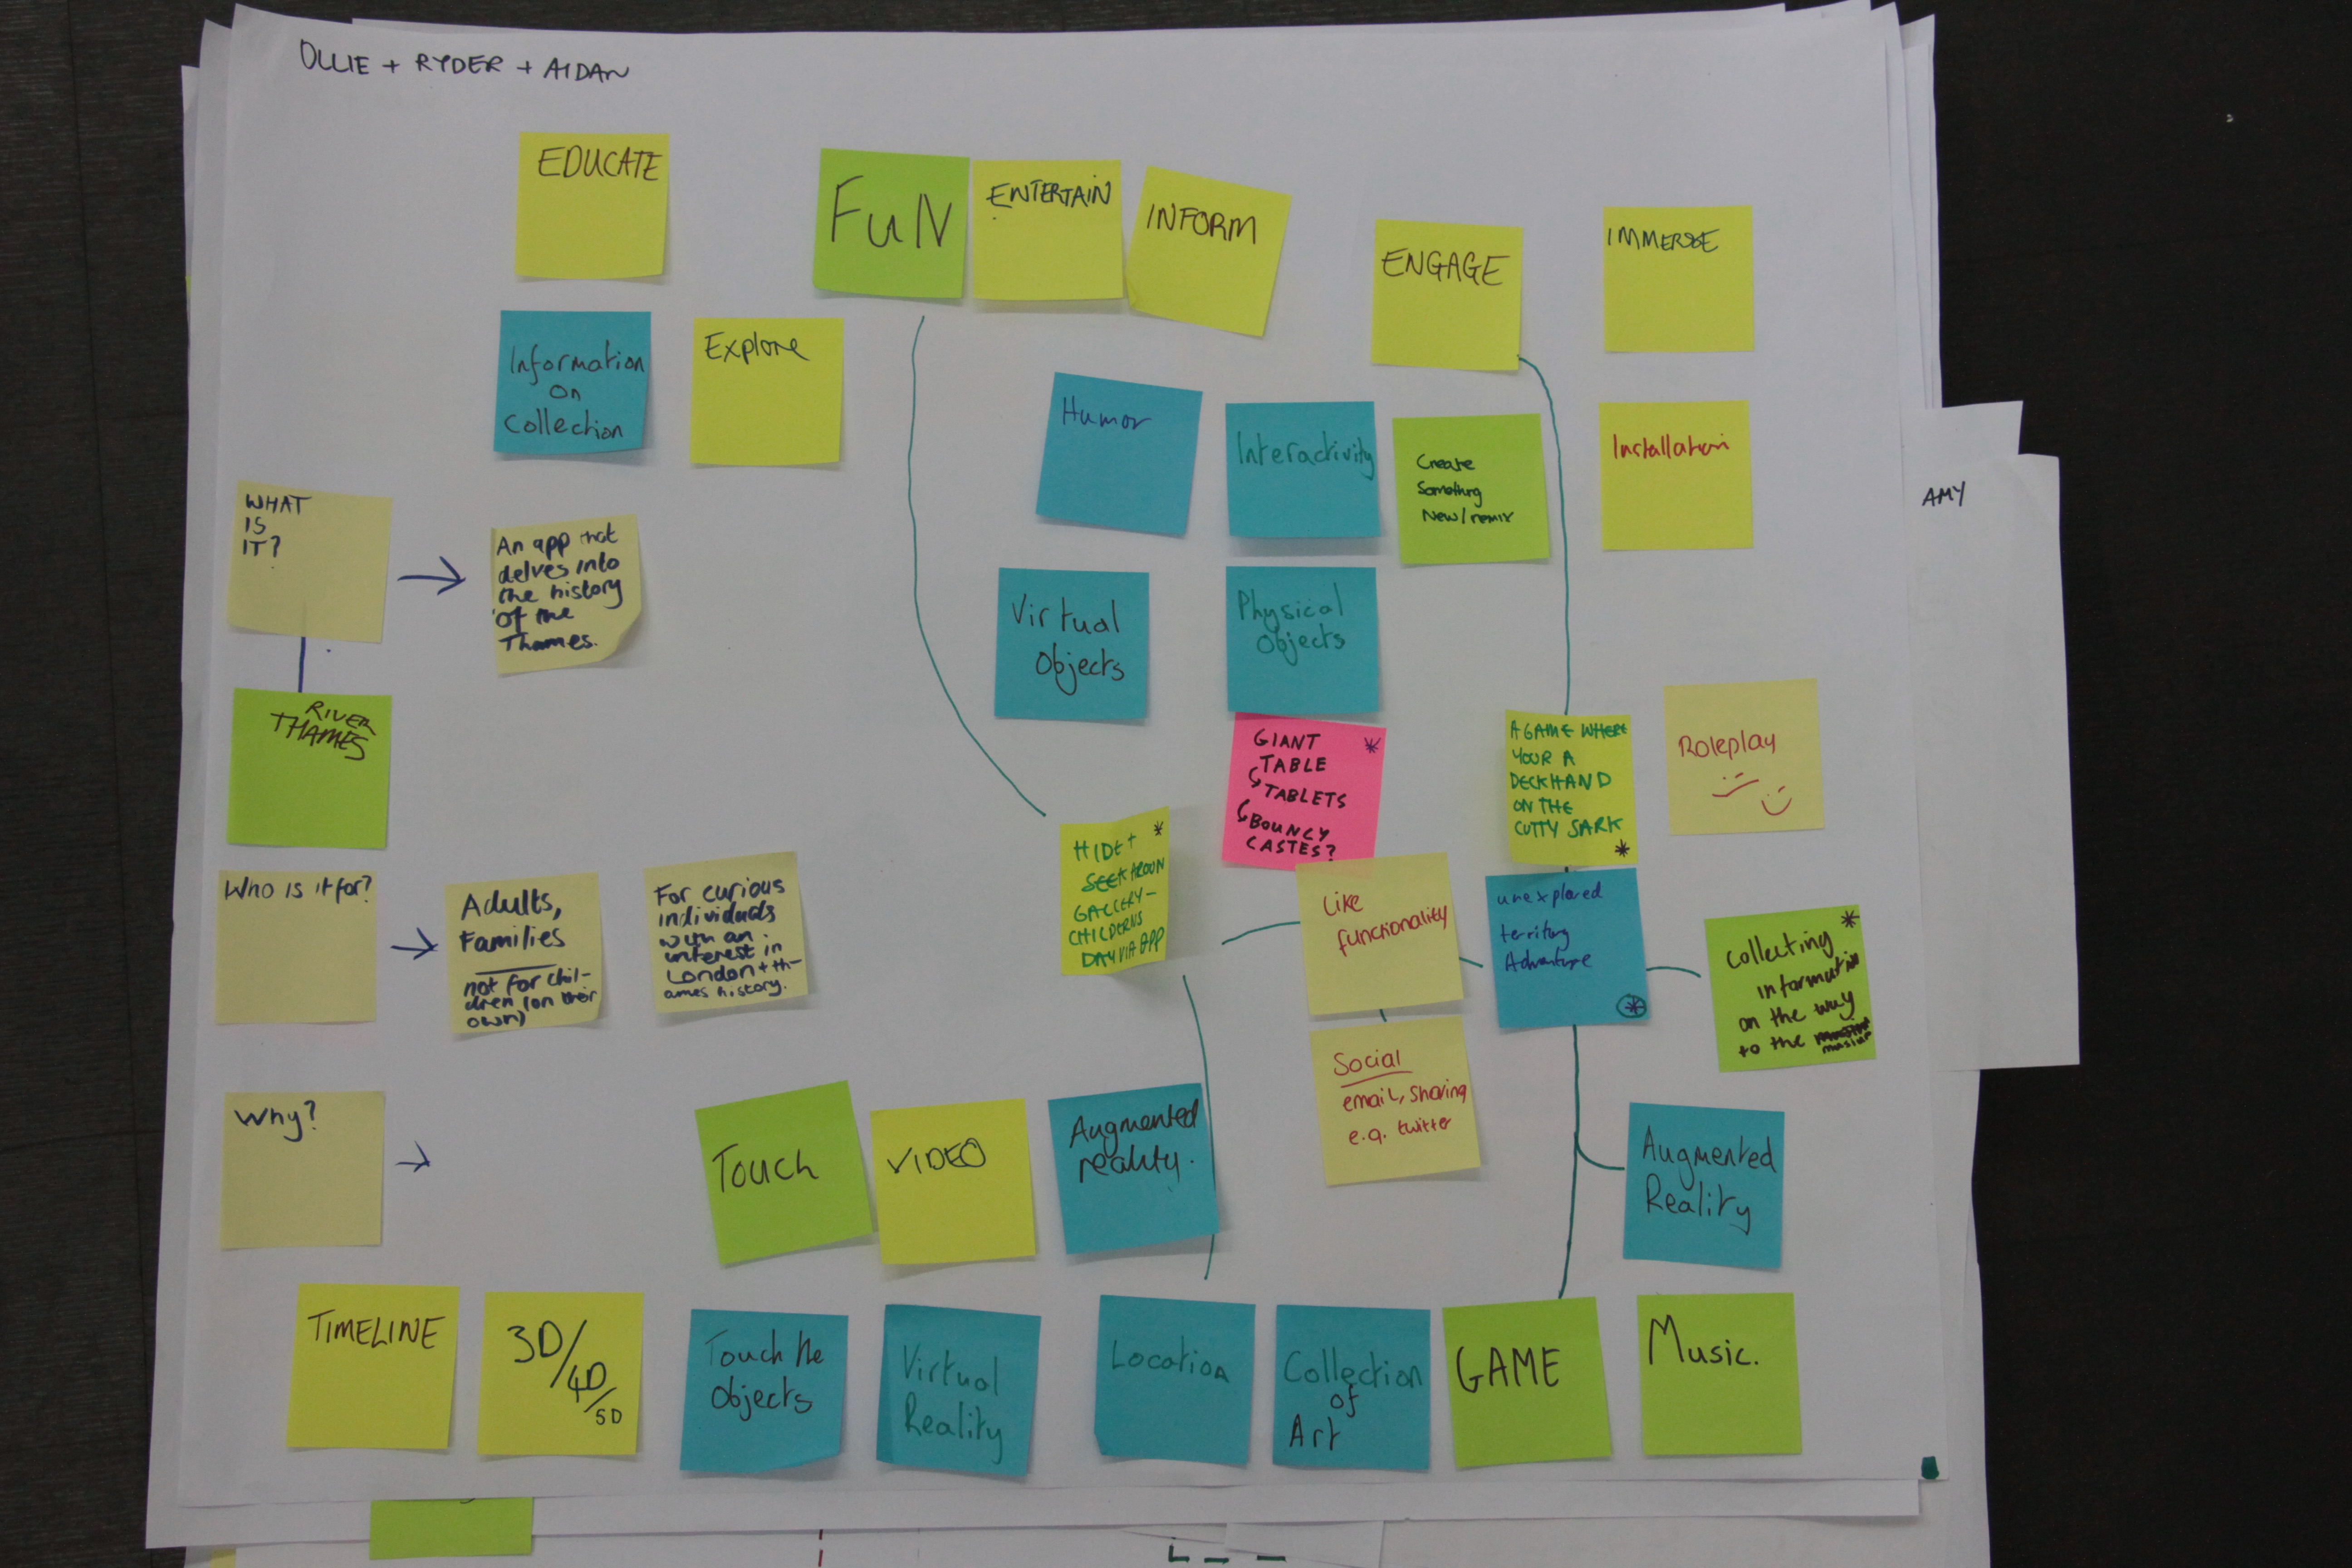 OLLIE + RYDER + AIDAN
EDUCATE
FuN
ENTERTAIN
INFORM
ENGAGE
IMMERSE
Information
on
Collection
Explore
Humor
Interactivity
Create
Something
New/remix
Installation
AMY
WHAT
IS
IT?
An app that
delves into
the history
of the
Thames.
Virtual
Objects
Physical
Objects
RIVER
THAMES
GIANT
TABLE
TABLETS
BOUNCY
CASTES?
A GAME WHERE
YOUR A
DECKHAND
ON THE
CUTTY SARK
Roleplay
HIDE +
SEEK AROUN
GALLERY-
CHILDERNS
DAY VIA APP
Who is it for?
Adults,
Families
not for chil-
dren (on their
own)
For curious
individuals
with an
interest in
London + th-
ames history.
Like
functionality
unexplored
territory
Adventure
Collecting
information
on the way
to the
Social
email, sharing
e.g. twitter
Why?
Touch
VIDEO
Augmented
reality.
Augmented
Reality
TIMELINE
3D/
4D/
5D
Touch the
Objects
Virtual
Reality
Location
Collection
of
Art
GAME
Music.